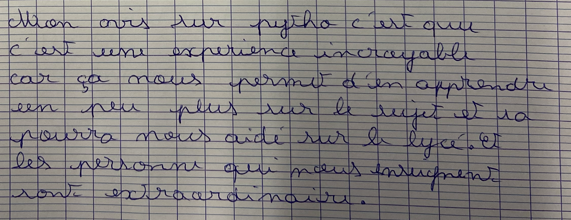 Mon avis sur pytho c'est que
c'est une experience incroyable
car ça nous permit d'en apprendre
un peu plus sur le sujet et sa
pourra nous aidé sur le lycé. et
les personne qui nous enseignent
sont extraordinaire.